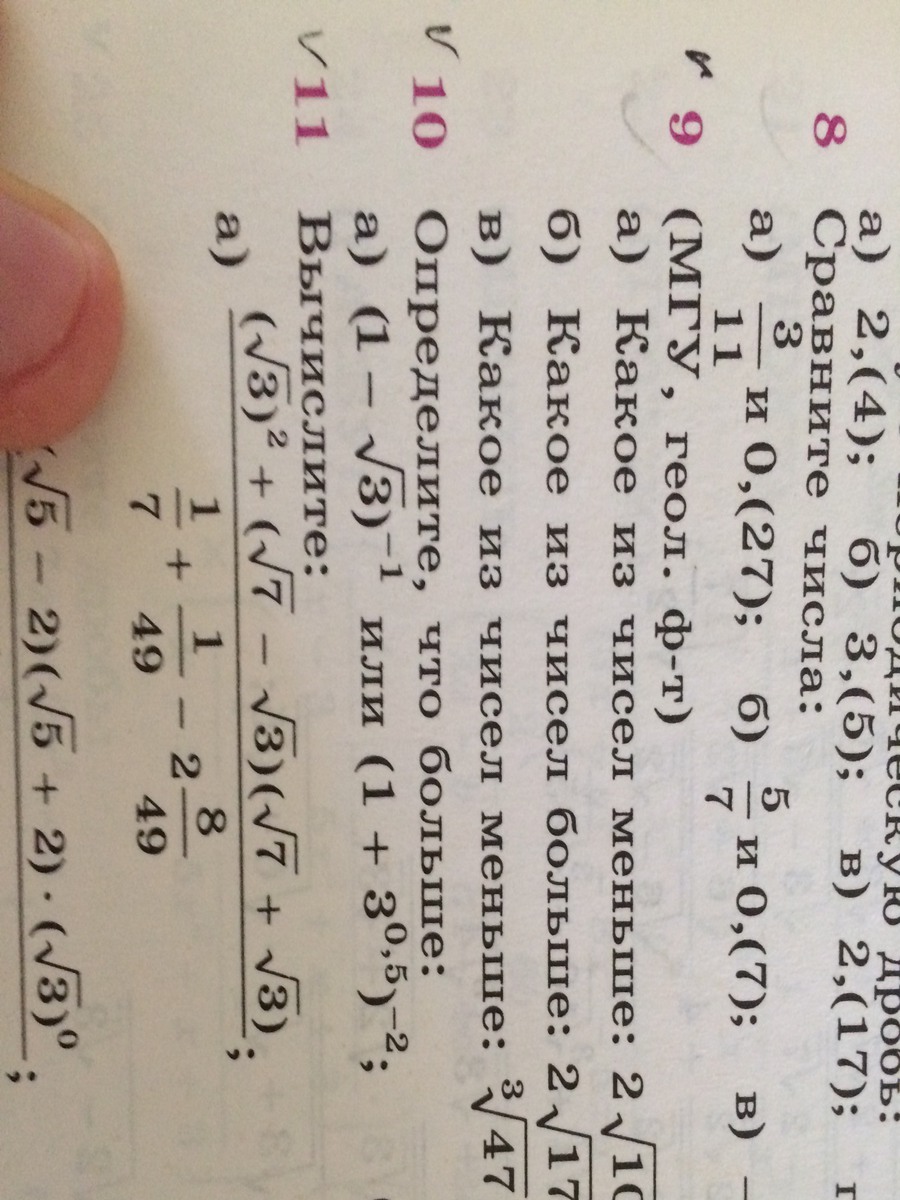 а) 2,(4); б) 3,(5); в) 2,(17);
8 Сравните числа:
а) 3/11 и 0,(27); б) 5/7 и 0,(7); в)
9 (МГУ, геол. ф-т)
а) Какое из чисел меньше: 2√10
б) Какое из чисел больше: 2√17
в) Какое из чисел меньше: ³√47
10 Определите, что больше:
а) (1 − √3)⁻¹ или (1 + 3⁰,⁵)⁻²;
11 Вычислите:
а) (√3)² + (√7 − √3)(√7 + √3)
1/7 + 1/49 − 2 8/49 ;
√5 − 2)(√5 + 2) · (√3)⁰ ;